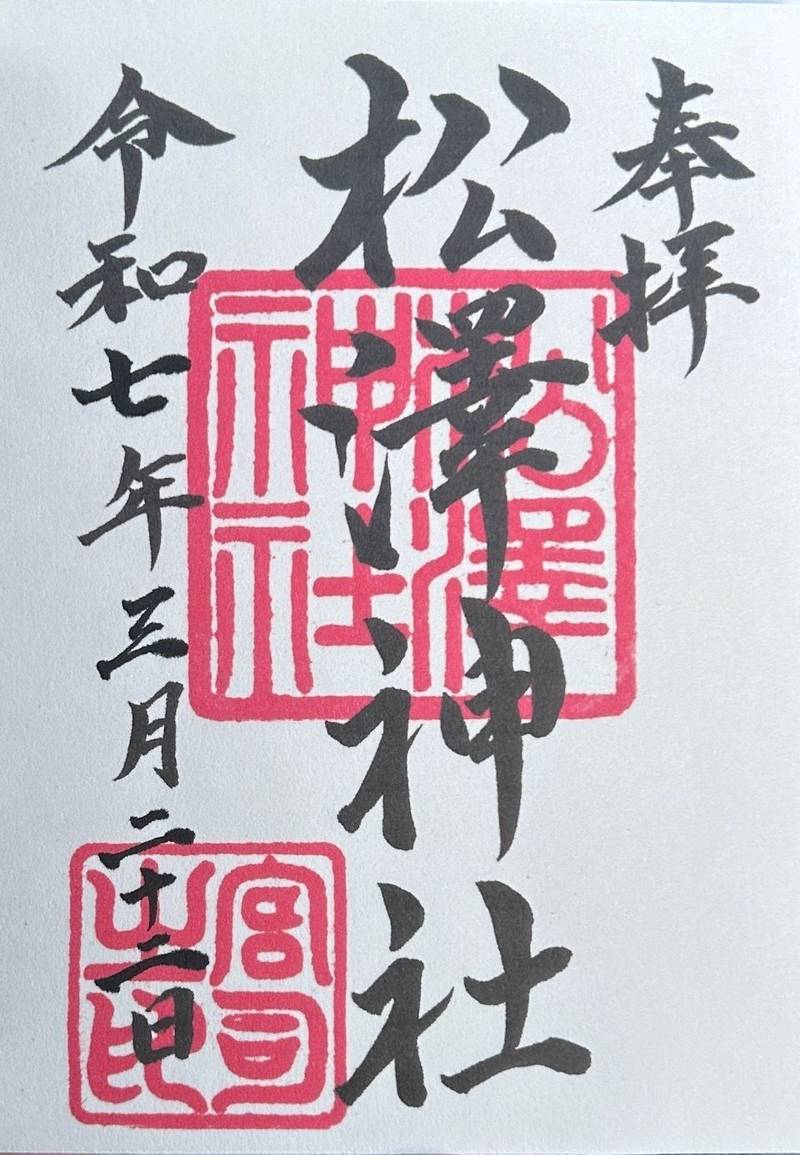 奉拝
松澤神社
令和七年三月二十二日
松澤
神社
宮司
之印